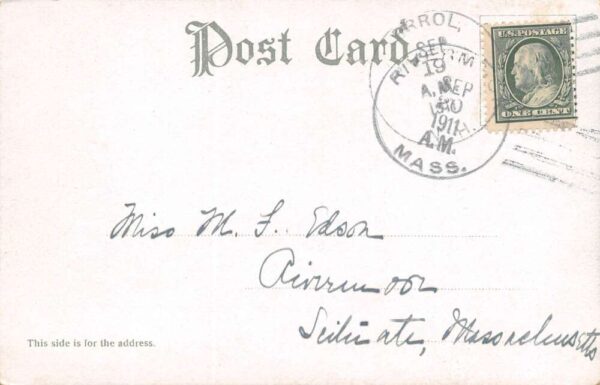 Post Card
U.S. POSTAGE
ONE CENT
SEP
19
A.M.
SEP
20
1911
A.M.
MASS.
Miss M. F. Edson
Rivermoor
Scituate, Massachusetts
This side is for the address.